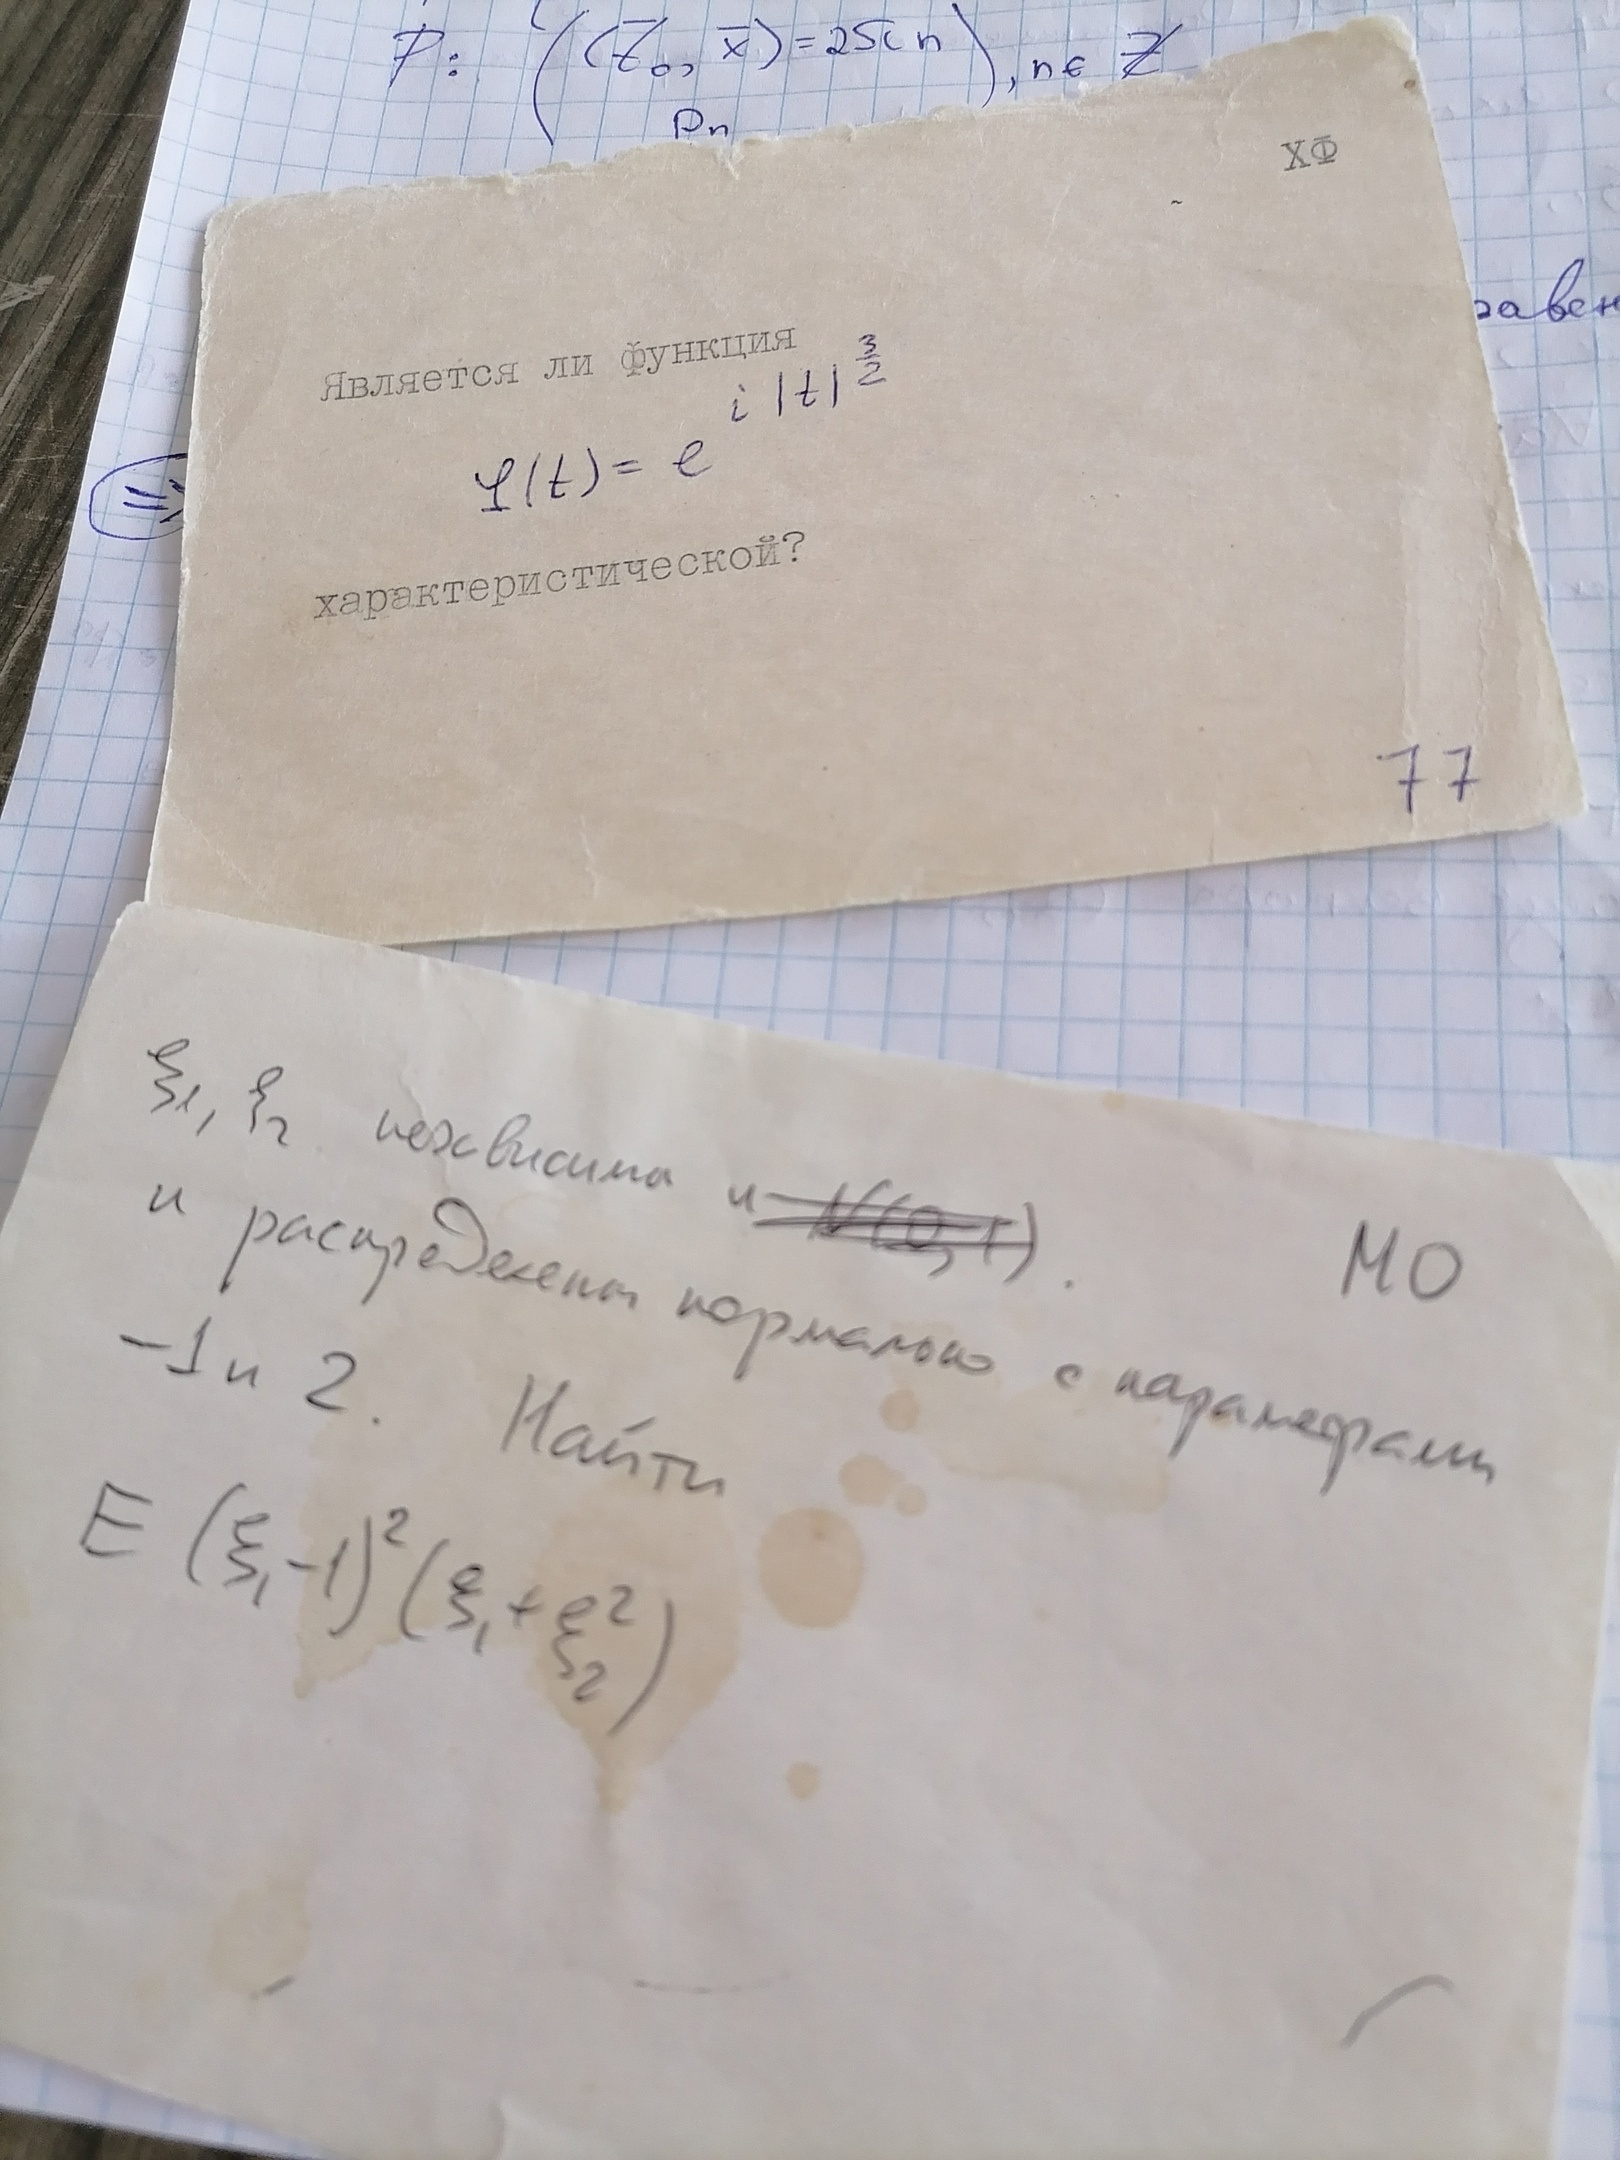 P: ((Z₀, x̄) = 25i n), n ∈ Z
Pn
ХФ
Является ли функция
φ(t) = e^{i |t|^{3/2}}
характеристической?
=>
77
ξ₁, ξ₂ независимы и ~~N(0,1)~~.
МО
и распределены нормально с параметрами
-1 и 2. Найти
E (ξ₁-1)² (ξ₁ + ξ₂²)